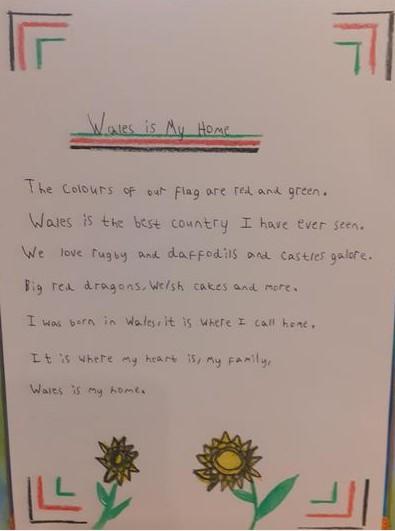 Wales is My Home
The Colours of our flag are red and green.
Wales is the best country I have ever seen.
We love rugby and daffodils and castles galore.
Big red dragons, Welsh cakes and more.
I was born in Wales, it is where I call home.
It is where my heart is, my family,
Wales is my home.